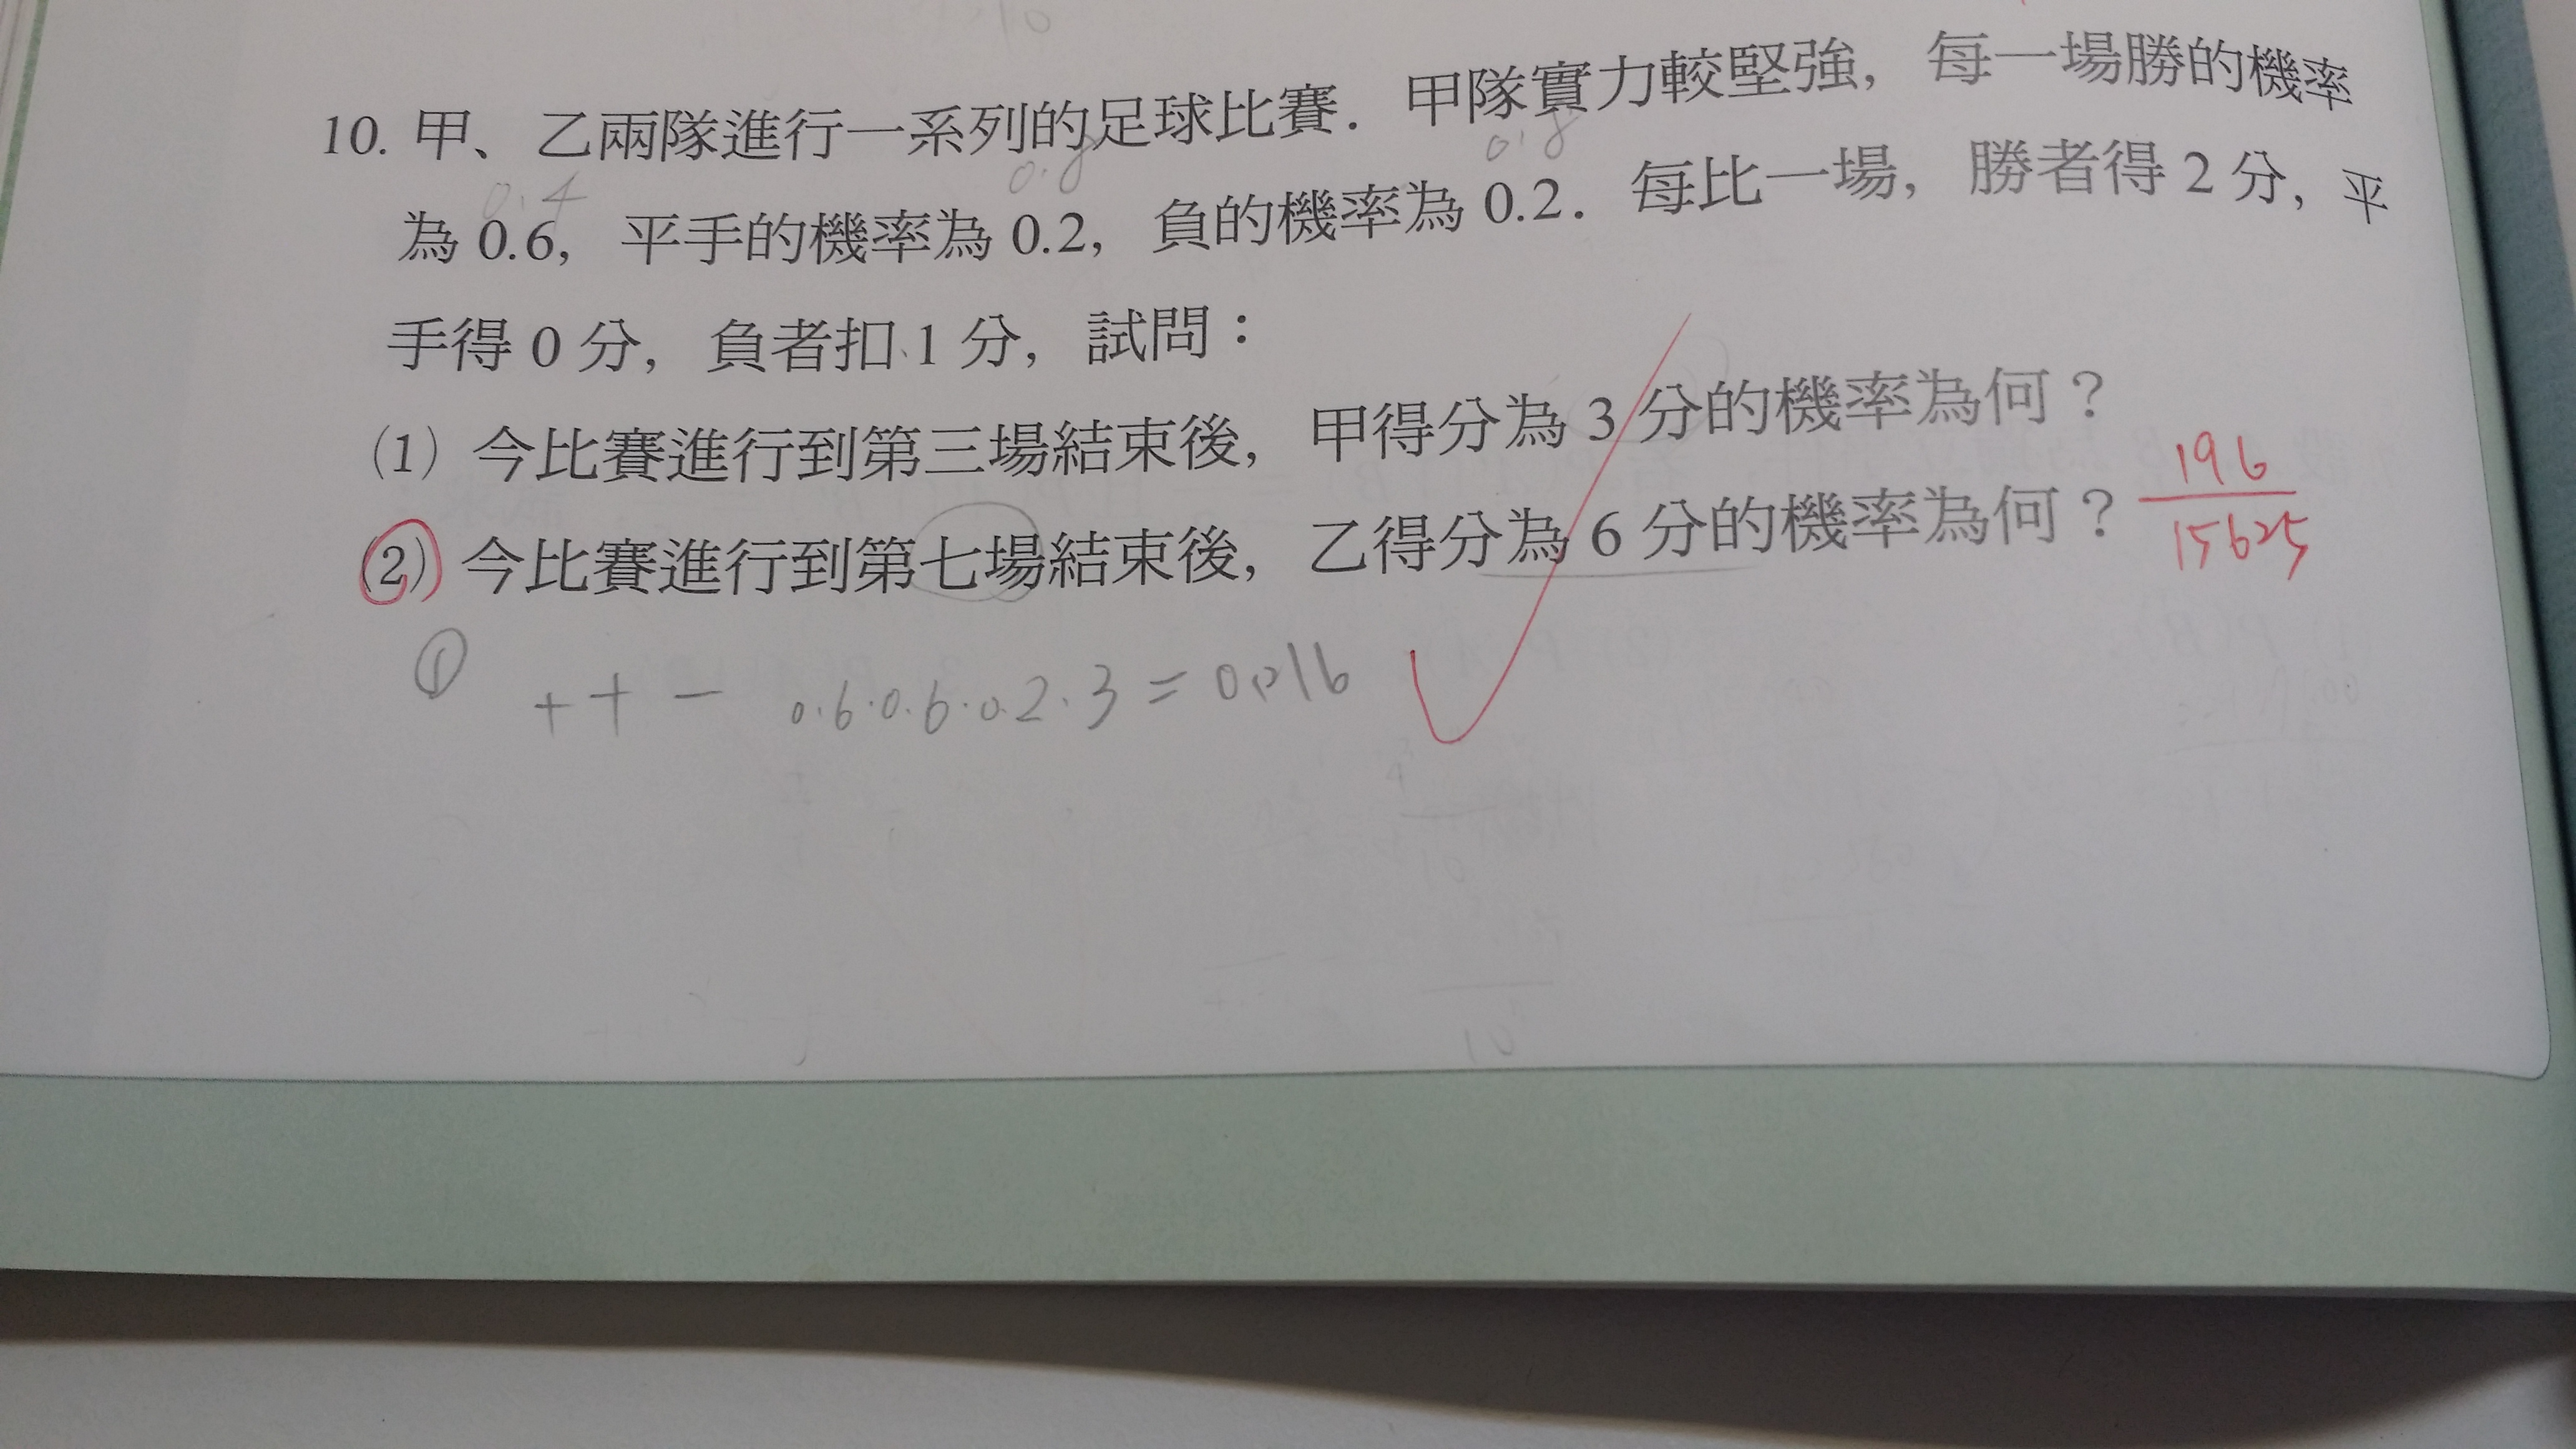 10. 甲、乙兩隊進行一系列的足球比賽．甲隊實力較堅強，每一場勝的機率
0.4 0.8 0.8
為 0.6，平手的機率為 0.2，負的機率為 0.2．每比一場，勝者得 2 分，平
手得 0 分，負者扣 1 分，試問：
(1) 今比賽進行到第三場結束後，甲得分為 3 分的機率為何？
(2) 今比賽進行到第七場結束後，乙得分為 6 分的機率為何？
196
15625
① + + − 0.6·0.6·0.2·3 = 0.216